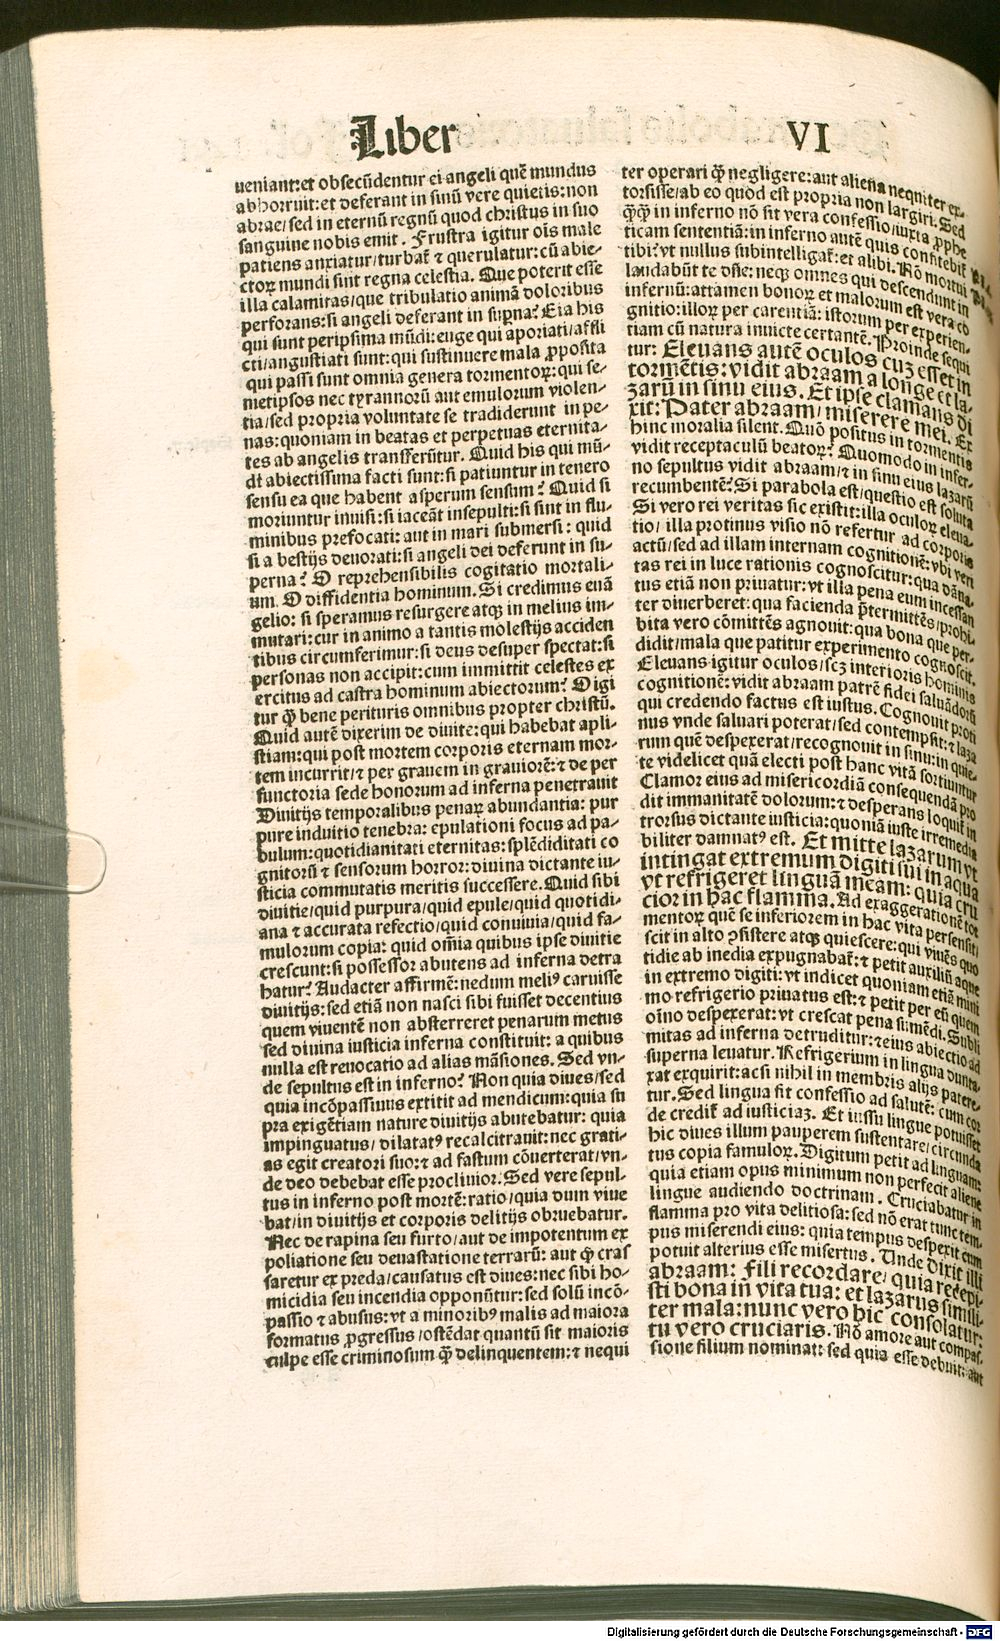 Liber VI
ueniant:et obsecũdentur ei angeli quẽ mundus
abhorruit:et deferant in sinũ vere quietis:non
abrae/sed in eternũ regnũ quod christus in suo
sanguine nobis emit. Frustra igitur ois male
patiens anxiatur/turbat̃ ⁊ querulatur:cũ abie-
ctoꝝ mundi sint regna celestia. Que poterit esse
illa calamitas/que tribulatio animã doloribus
perforans:si angeli deferant in supna? Eia his
qui sunt peripsima mũdi:euge qui aporiati/affli
cti/angustiati sunt:qui sustinuere mala ꝓposita
qui passi sunt omnia genera tormentoꝝ:qui se-
metipsos nec tyrannorũ aut emulorum violen-
tia/sed propria voluntate se tradiderunt in pe-
nas:quoniam in beatas et perpetuas eternita-
tes ab angelis transferũtur. Quid his qui mũ-
di abiectissima facti sunt:si patiuntur in tenero
sensu ea que habent asperum sensum? Quid si
moriuntur inuisi:si iaceãt insepulti:si sint in flu-
minibus prefocati: aut in mari submersi: quid
si a bestijs deuorati:si angeli dei deferunt in su-
perna? O reprehensibilis cogitatio mortali-
um. O diffidentia hominum. Si credimus euã
gelio: si speramus resurgere atqꝫ in melius im-
mutari:cur in animo a tantis molestijs acciden
tibus circumferimur:si deus desuper spectat:si
personas non accipit:cum immittit celestes ex
ercitus ad castra hominum abiectorum? Digi
tur ꝙ̃ bene perituris omnibus propter christũ.
Quid autẽ dixerim de diuite:qui habebat apli-
stiam:qui post mortem corporis eternam mor-
tem incurrit/⁊ per grauem in grauiorẽ:⁊ de per
functoria sede honorum ad inferna penetrauit
Diuitijs temporalibus penaꝝ abundantia: pur
pure induitio tenebra: epulationi focus ad pa-
bulum:quotidianitati eternitas:splẽdiditati co
gnitorũ ⁊ sensorum horror:diuina dictante iu-
sticia commutatis meritis successere. Quid sibi
diuitie/quid purpura/quid epule/quid quotidi-
ana ⁊ accurata refectio/quid conuiuia/quid fa-
mulorum copia: quid om̃ia quibus ipse diuitie
crescunt:si possessor abutens ad inferna detra
hatur? Audacter affirmẽ:nedum meliꝰ caruisse
diuitijs:sed etiã non nasci sibi fuisset decentius
quem viuentẽ non absterreret penarum metus
sed diuina iusticia inferna constituit: a quibus
nulla est reuocatio ad alias mãsiones. Sed vn-
de sepultus est in inferno? Non quia diues/sed
quia incõpassiuus extitit ad mendicum:quia su
pra exigẽtiam nature diuitijs abutebatur: quia
impinguatus/dilatatꝰ recalcitrauit:nec grati-
as egit creatori suo:⁊ ad fastum cõuerterat/vn-
de deo debebat esse procliuior. Sed vere sepul-
tus in inferno post mortẽ:ratio/quia dum viue
bat/in diuitijs et corporis delitijs obruebatur.
Nec de rapina seu furto/aut de impotentum ex
poliatione seu deuastatione terrarũ: aut ꝙ̃ cras
saretur ex preda/causatus est diues:nec sibi ho-
micidia seu incendia opponũtur:sed solũ incõ-
passio ⁊ abusus:vt a minoribꝰ malis ad maiora
formatus ꝓgressus/ostẽdat quantũ sit maioris
culpe esse criminosum ꝙ̃ delinquentem:⁊ nequi
ter operari ꝙ̃ negligere:aut aliena nequiter ex-
torsisse/ab eo quod est propria non largiri. Sed
ꝙ̃ꝙ̃ in inferno nõ sit vera confessio/iuxta ꝓphe
ticam sententiã:in inferno autẽ quis confitebit̃
tibi? vt nullus subintelligat̃:et alibi. Nõ mortui
laudabũt te dñe:neqꝫ omnes qui descendunt in
infernũ:attamen bonoꝝ et malorum est vera co
gnitio:illoꝝ per carentiã: istorum per experien-
tiam cũ natura inuicte certantẽ. Proinde sequi
tur: Eleuans autẽ oculos cuꝫ esset in
tormẽtis: vidit abraam a longe et la-
zarũ in sinu eius. Et ipse clamans di
xit: Pater abraam/miserere mei. Ex
hinc moralia silent. Quõ positus in tormentis
vidit receptaculũ beatoꝝ? Quomodo in infer-
no sepultus vidit abraam/⁊ in sinu eius lazarũ
recumbentẽ? Si parabola est/questio est soluta
Si vero rei veritas sic existit:illa oculoꝝ eleua-
tio/illa protinus visio nõ refertur ad corporis
actũ/sed ad illam internam cognitionẽ:vbi veri
tas rei in luce rationis cognoscitur:qua dãna-
tus etiã non priuatur:vt illa pena eum incessan
ter diuerberet:qua facienda p̃termittẽs/prohi-
bita vero cõmittẽs agnouit:qua bona que per-
didit/mala que patitur experimento cognoscit.
Eleuans igitur oculos/scꝫ interioris hominis
cognitionẽ:vidit abraam patrẽ fidei saluãdorũ
qui credendo factus est iustus. Cognouit proti
nus vnde saluari poterat/sed contempsit:⁊ laza
rum quẽ despexerat/recognouit in sinu:in quie-
te videlicet quã electi post hanc vitã sortiuntur
Clamor eius ad misericordiã consequendã pro
dit immanitatẽ dolorum:⁊ desperans loquit̃ in
trorsus dictante iusticia:quoniã iuste irremedia
biliter damnatꝰ est. Et mitte lazarum vt
intingat extremum digiti sui in aqua
vt refrigeret linguã meam: quia cru
cior in hac flamma. Ad exaggerationẽ tot
mentoꝝ quẽ se inferiorem in hac vita persensit/
scit in alto ↄsistere atqꝫ quiescere:qui viuẽs quo
tidie ab inedia expugnabat̃:⁊ petit auxiliũ aque
in extremo digiti:vt indicet quoniam etiã mini
mo refrigerio priuatus est:⁊ petit per eũ quem
oĩno despexerat:vt crescat pena sumẽdi. Subli
mitas ad inferna detruditur:⁊ eius abiectio ad
superna leuatur. Refrigerium in lingua dunta-
xat exquirit:ac si nihil in membris alijs patere-
tur. Sed lingua fit confessio ad salutẽ: cum cor
de credit̃ ad iusticiaꝫ. Et iussu lingue potuisset
hic diues illum pauperem sustentare/circunda
tus copia famuloꝝ. Digitum petit ad linguam:
quia etiam opus minimum non perfecit aliene
lingue audiendo doctrinam. Cruciabatur in
flamma pro vita delitiosa:sed nõ erat tunc tem-
pus miserendi eius: quia tempus despexit cum
potuit alterius esse misertus. Unde dixit illi
abraam: Fili recordare/quia recepi-
sti bona in vita tua: et lazarus simili-
ter mala:nunc vero hic consolatur:
tu vero cruciaris. Nõ amore aut compas-
sione filium nominat: sed quia esse debuit: aut
Digitalisierung gefördert durch die Deutsche Forschungsgemeinschaft - DFG